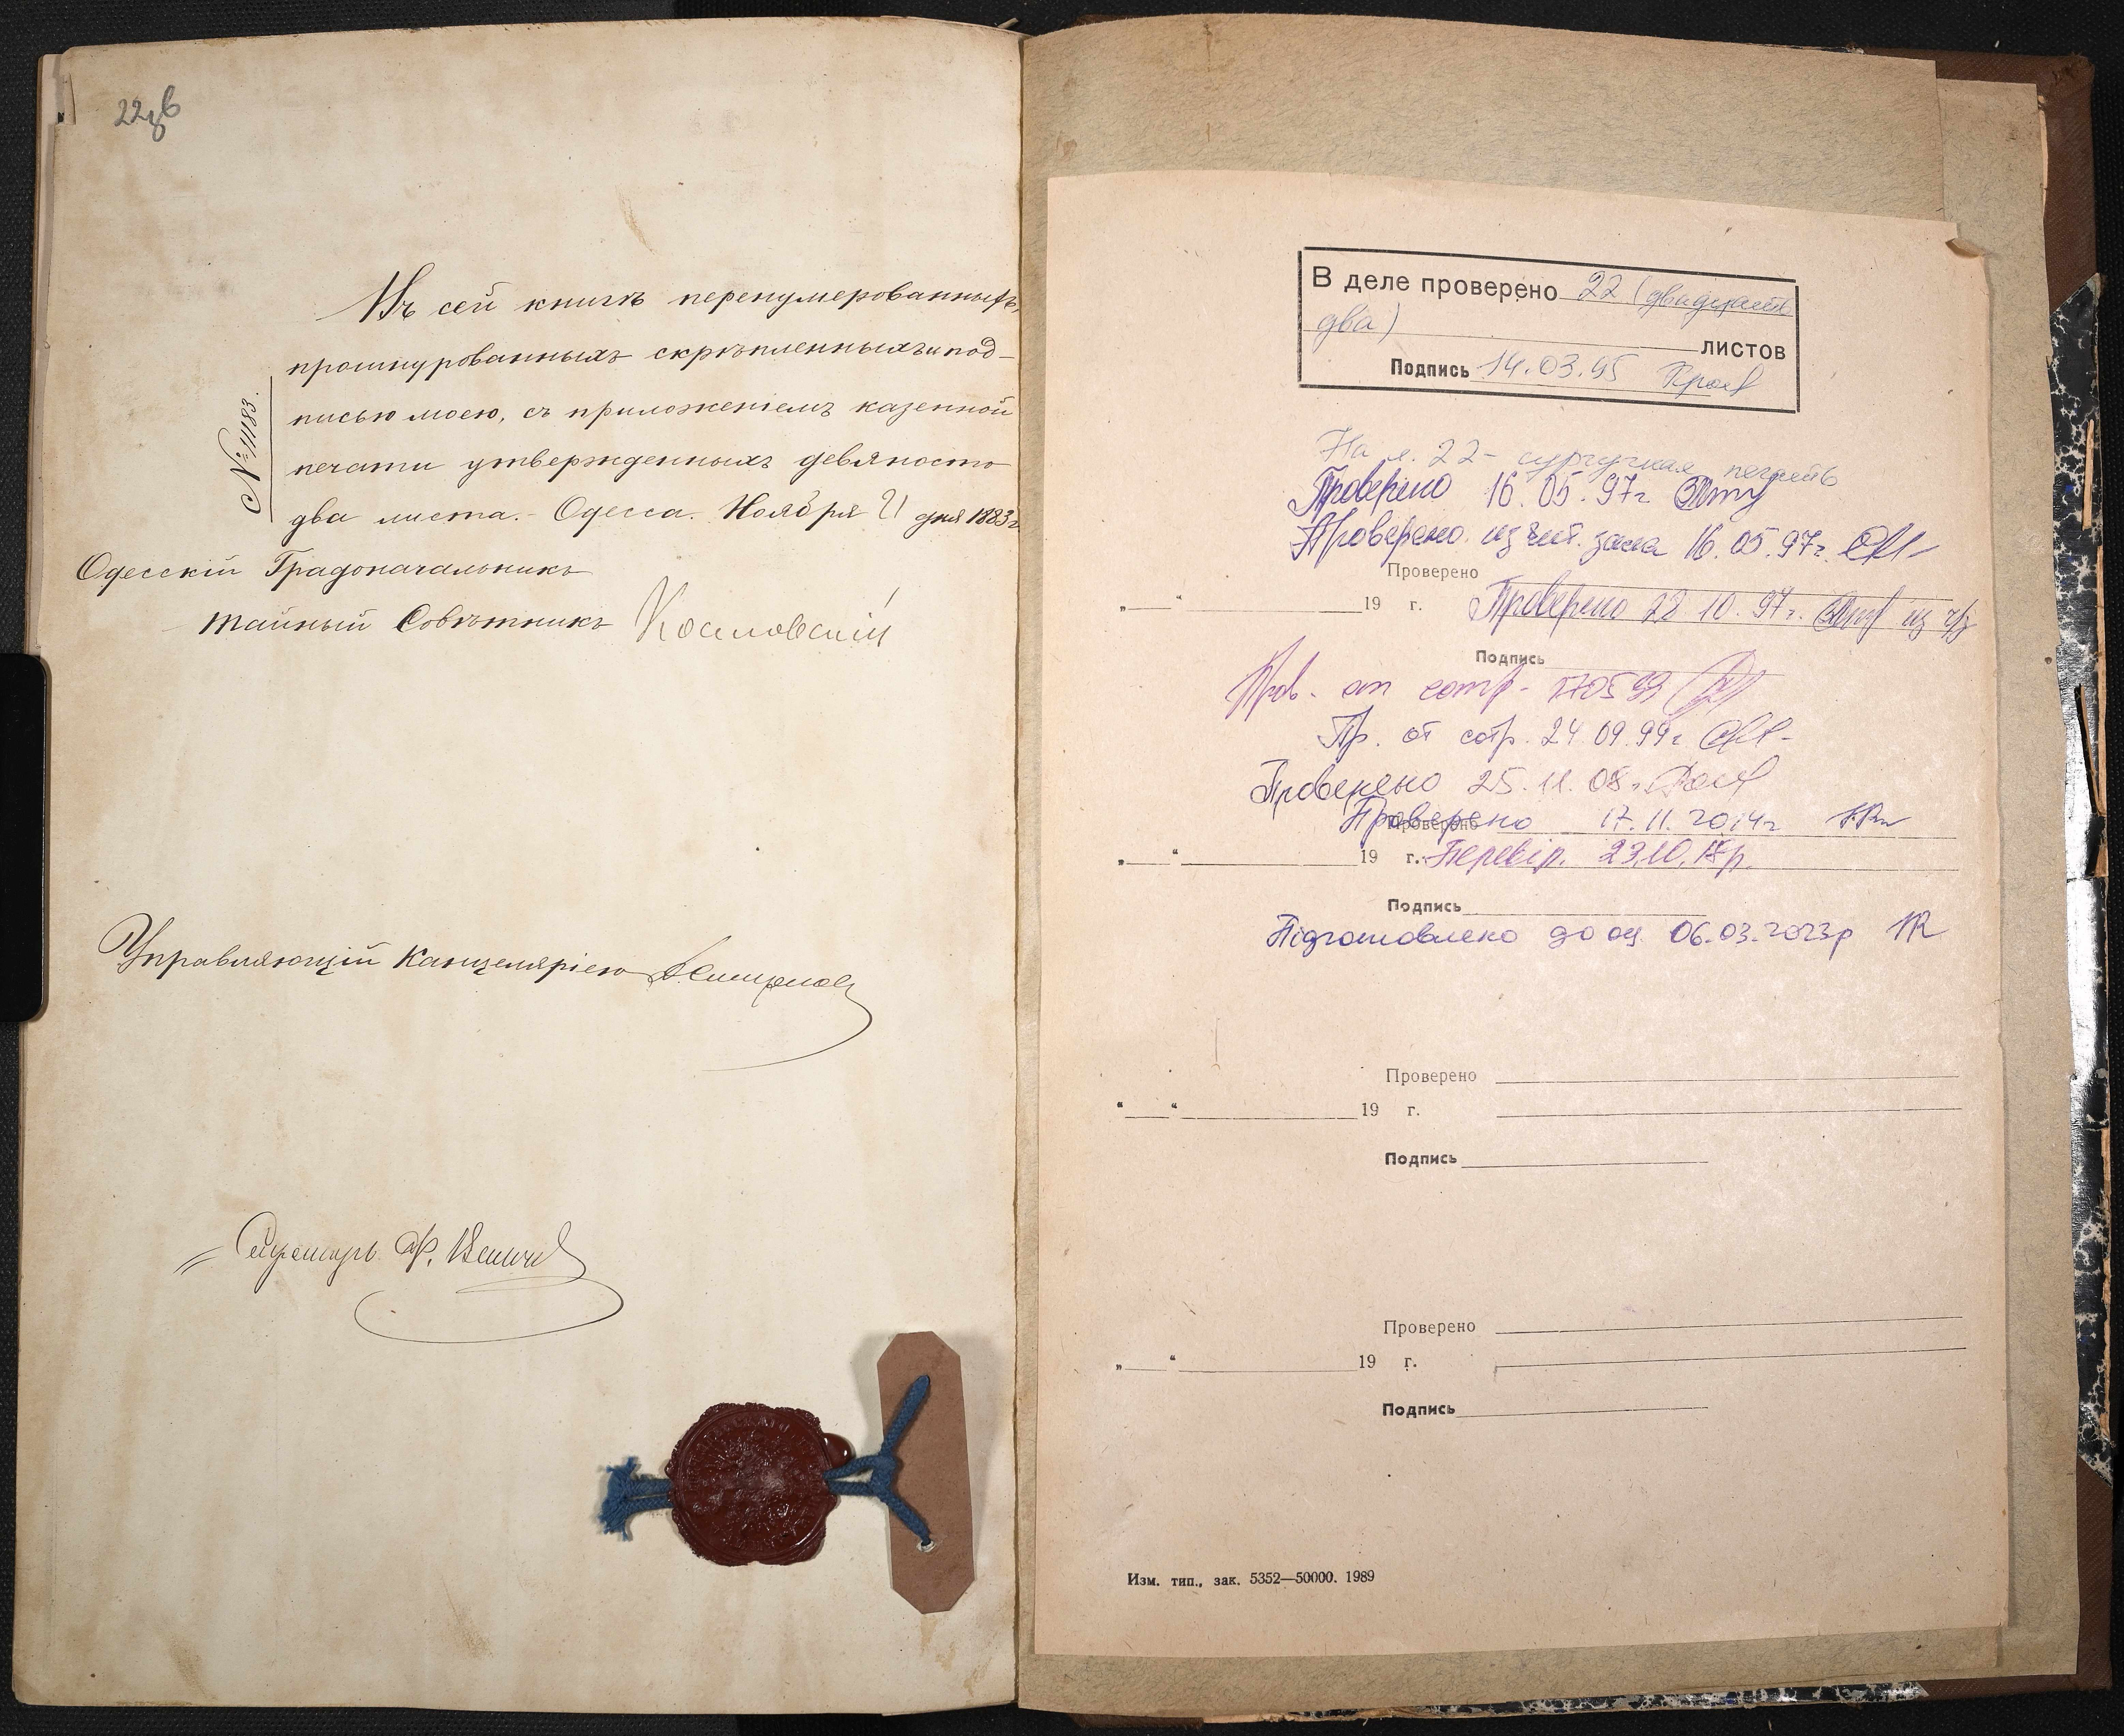 22зв
Въ сей книгѣ перенумерованныхъ,
прошнурованныхъ скрѣпленныхъ и под-
писью моею, съ приложеніемъ казенной
печати утвержденныхъ девяносто
два листа. - Одесса. Ноября 21 дня 1883 г.
№ 11183.
Одесскій Градоначальникъ
Тайный Совѣтникъ
Управляющій Канцеляріею
Секретарь Ф.
В деле проверено 22 (двадцать
два) листов
Подпись 14.03.95
На л. 22 - сургучная печать
Проверено 16.05.97г
Проверено из чит. зала 16.05.97г.
Проверено
„ “ 19 г. Проверено 28 10.97г. из ч/з
Подпись
Пров. от сотр. 170599
Пр. от сотр. 24.09.99г
Проверено 25.11.08г.
Проверено Проверено 17.11.2014г
„ “ 19 г. Перевір. 23.10.18р.
Подпись
Підготовлено до оц. 06.03.2023р
Проверено
“ “ 19 г.
Подпись
Проверено
„ “ 19 г.
Подпись
Изм. тип., зак. 5352—50000. 1989